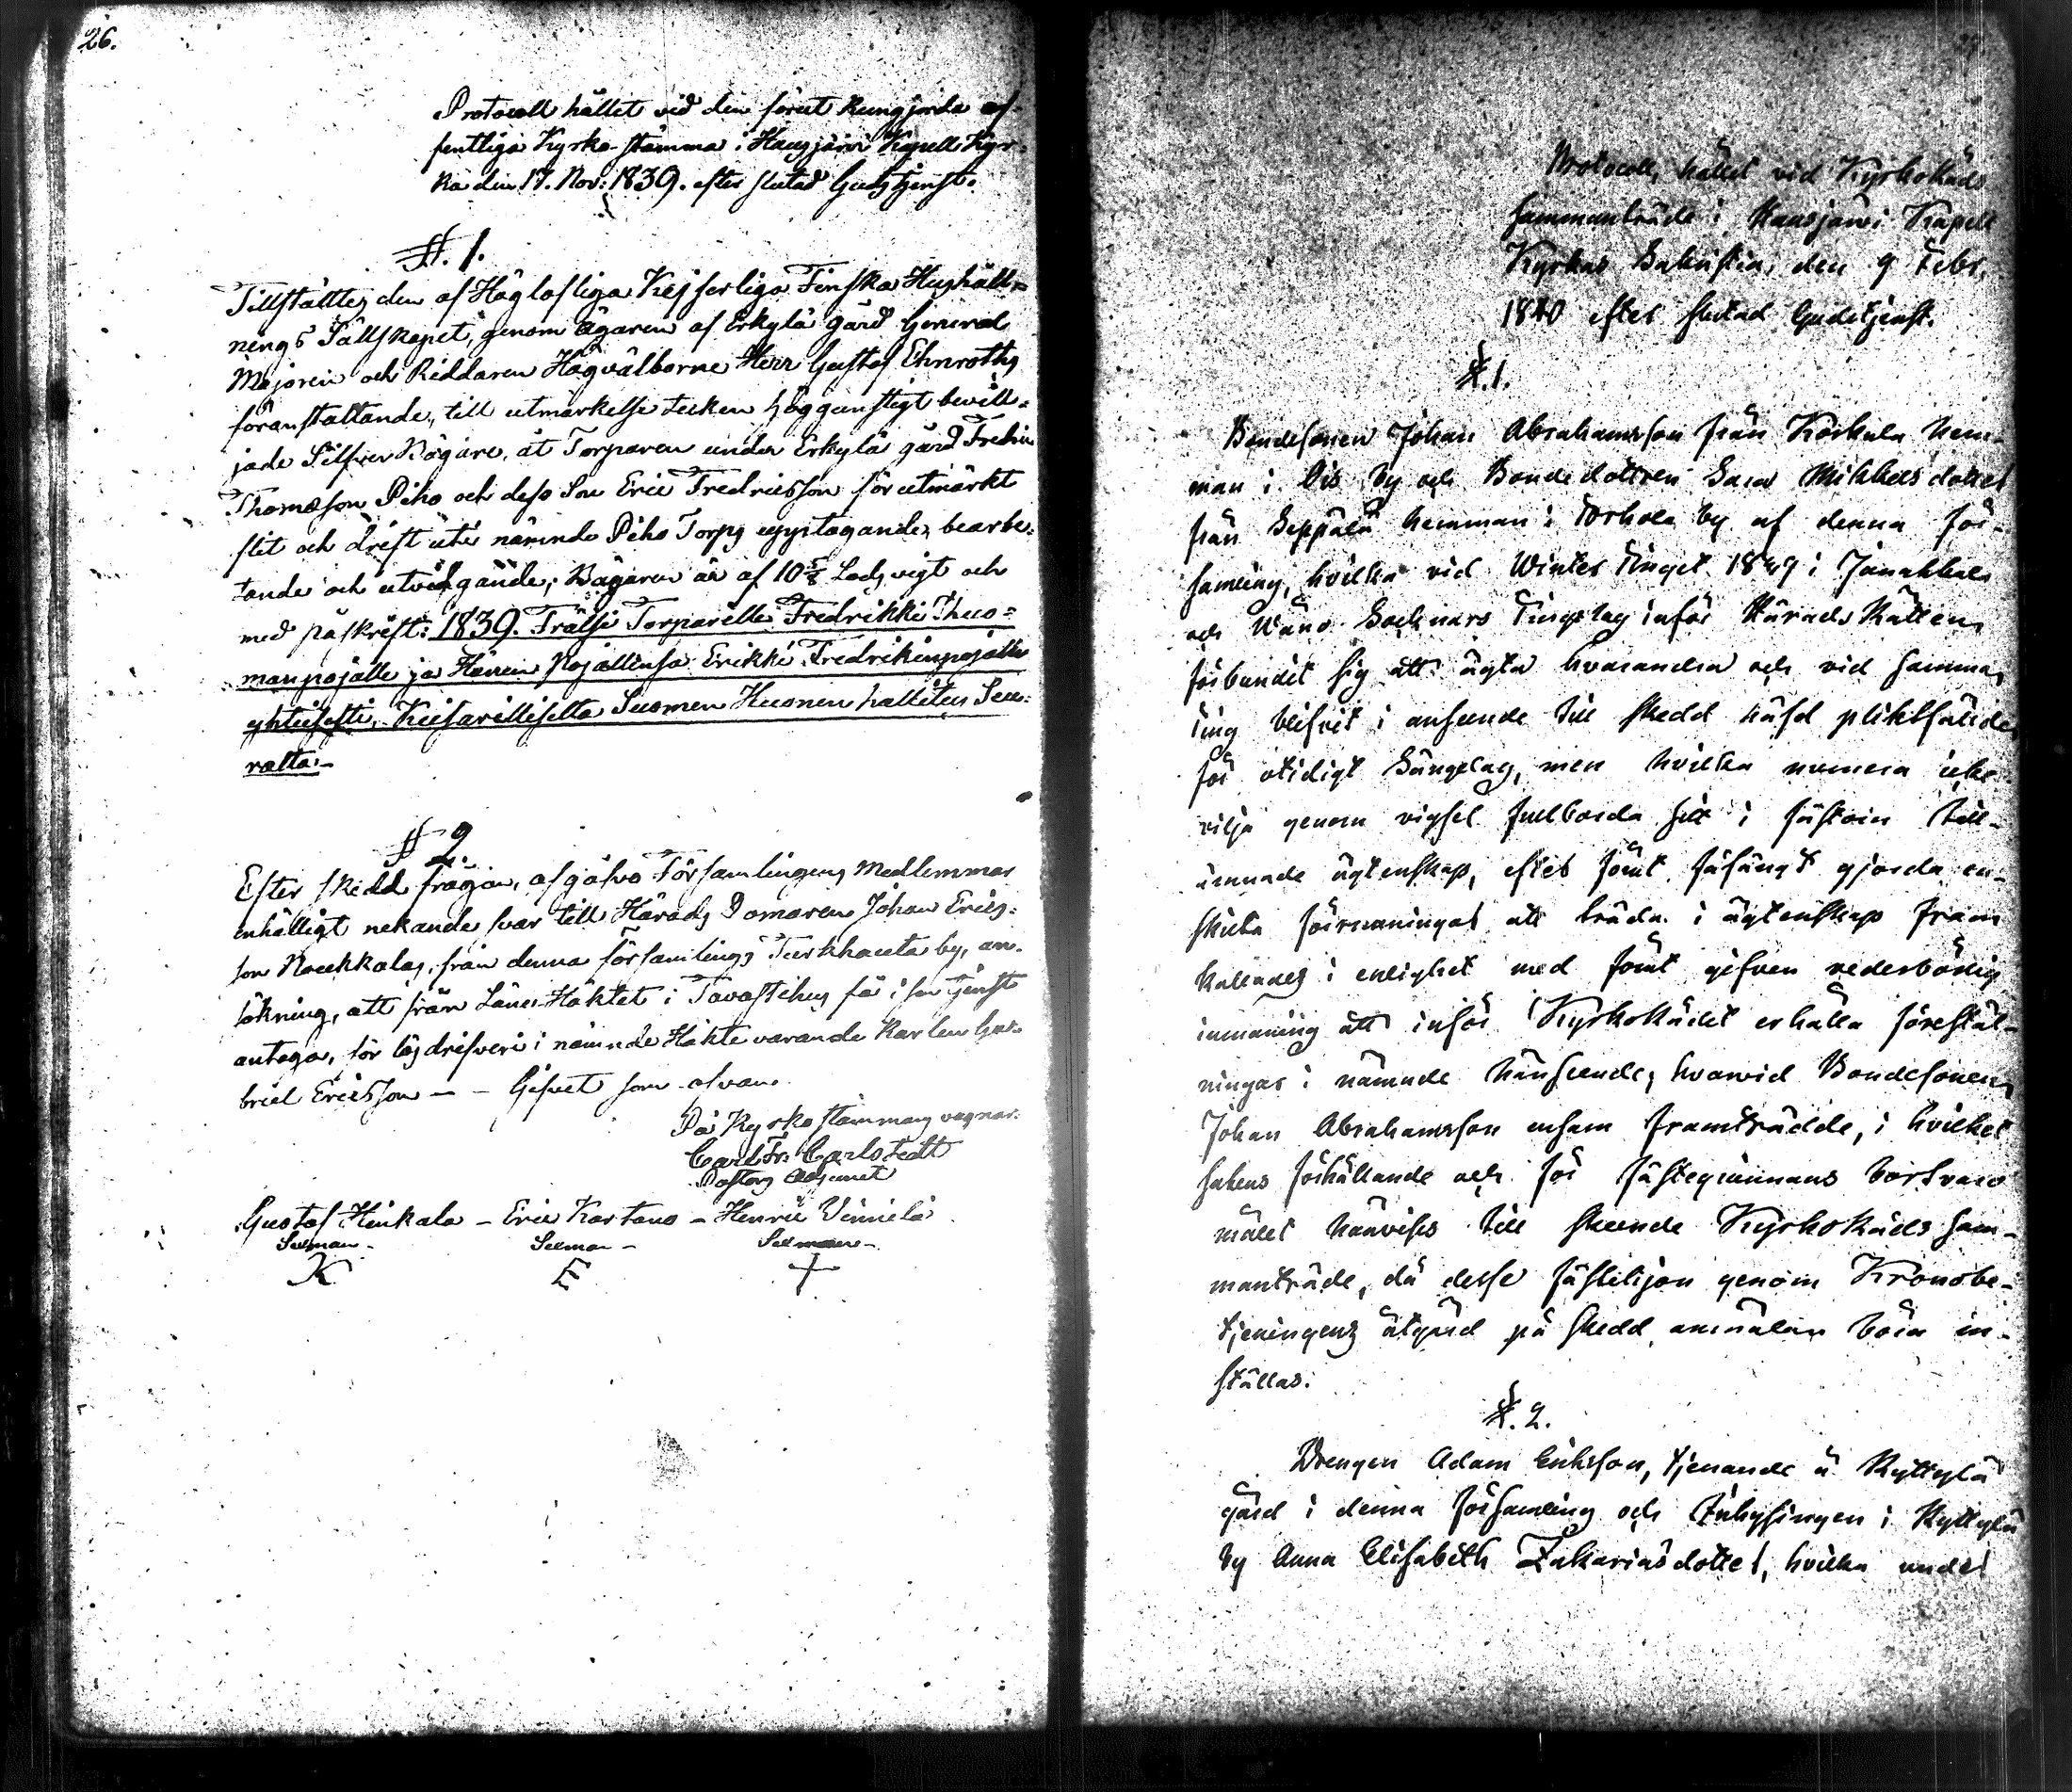 26.
Protocoll hållet vid den förut kungjorde of-
fentliga Kyrko-stämma i Hausjärvi Kapell Kyr-
ka den 17. Nov: 1839. efter slutad Gudstjenst.
§. 1.
Tillställtes den af Höglofliga Kejserliga Finska Hushåll-
nings Sällskapet, genom Ägaren af Erkylä gård General
Majoren och Riddaren Högvälborne Herr Gustaf Ehnroths
föranstaltande, till utmärkelse tecken höggunstigt bevill-
jade Silfver Bägare, åt Torparen under Erkylä gård Fredric
Thomasson Piho och dess Son Eric Fredricsson för utmärkt
flit och drift uti nämnde Piho Torps upptagande, bearbe-
tande och utvidgande; Bägaren är af 10 Lods vigt och
med påskrift: 1839. Frälsi Torparille Fredrikki Thuo-
manpojalle ja Hänen Pojallensa Erikki Fredrikinpojalle
yhteisesti, Keisarilliselta Suomen Huonen hallitus Seu-
ralta.-
§ 2.
Efter skedd frågan, afgåfvo Församlingens Medlemmar
enhälligt nekande svar till Härads Domaren Johan Erics-
son Roukkalas, från denna församlings Turkhauta by, an-
sökning, att från Läns Häktet i Tavastehus få i sin tjenst
antaga, för lösdrifveri i nämnde Häkte varande Karlen Ga-
briel Ericsson - - Gifvet som ofvan.
På Kyrko stämmans vagnar.
Carl Fr. Carlstedt
Pastors Adjunct
Gustaf Hinkala - Eric Kartano - Henric Vinnelä
Sexman - Sexman - Sexman -
K E +
Protocoll, hållit vid Kyrkoråds
sammanträde i Hausjärvi Kapell
Kyrkas Sakristia, den 9 Febr.
1840 efter slutad Gudstjenst.
§. 1.
Bondesonen Johan Abrahamsson från Körkula hem-
man i Ois by och Bondedottren Sara Mikkelsdotter
från Seppälä hemman i Torhola by af denna för-
samling, hvilka vid Winter Tinget 1839 i Janakkala
och Wånå Socknars Tingslag inför Härads Rätten
förbundit sig att ägta hvarandra och vid samma
Ting blifvit i anseende till skedd häfd pliktfälde
för otidigt Sängelag, men hvilka numera icke
vilja genom vigsel fullborda sitt i såframt till-
ämnade ägtenskap, efter förut fåfängt gjorda en-
skilta förmaningar att träda i ägtenskap fram
kallades i enlighet med förut gifven vederbörlig
inmaning att inför Kyrkorådet erhålla föreställ-
ningar i nämnde hänseende; hvarvid Bondesonen
Johan Abrahamsson ensam framträdde, i hvilket
sakens förhållande och för fästeqvinnans bortvaro
målet hänvises till skeende Kyrkoråds sam-
manträde, då desse fästehjon genom Kronobe-
tjeningens åtgärd på skedd anmälan böra in-
ställas.
§. 2.
Drengen Adam Eriksson, tjenande å Ryttylä
gård i denna församling och Inhysingen i Ryttylä
by Anna Elisabeth Zakariasdotter, hvilka under